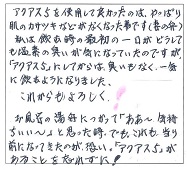 アクアスSを使用して良かったのは、やっぱり
肌のカサツキなどがなくなった事です(冬の分)
私は飲む時の最初の一口がどうしても
塩素の臭いが気になっていたのですが
「アクアスS」にしてからは、臭いもなく、一気
に飲めるようになりました、
これからもよろしく。
お風呂の湯舟につかって「ああ〜気持
ちいい〜」と思った時、でも、これも当り
前になってきたのが恐い。「アクアスS」が
あることを忘れずに!